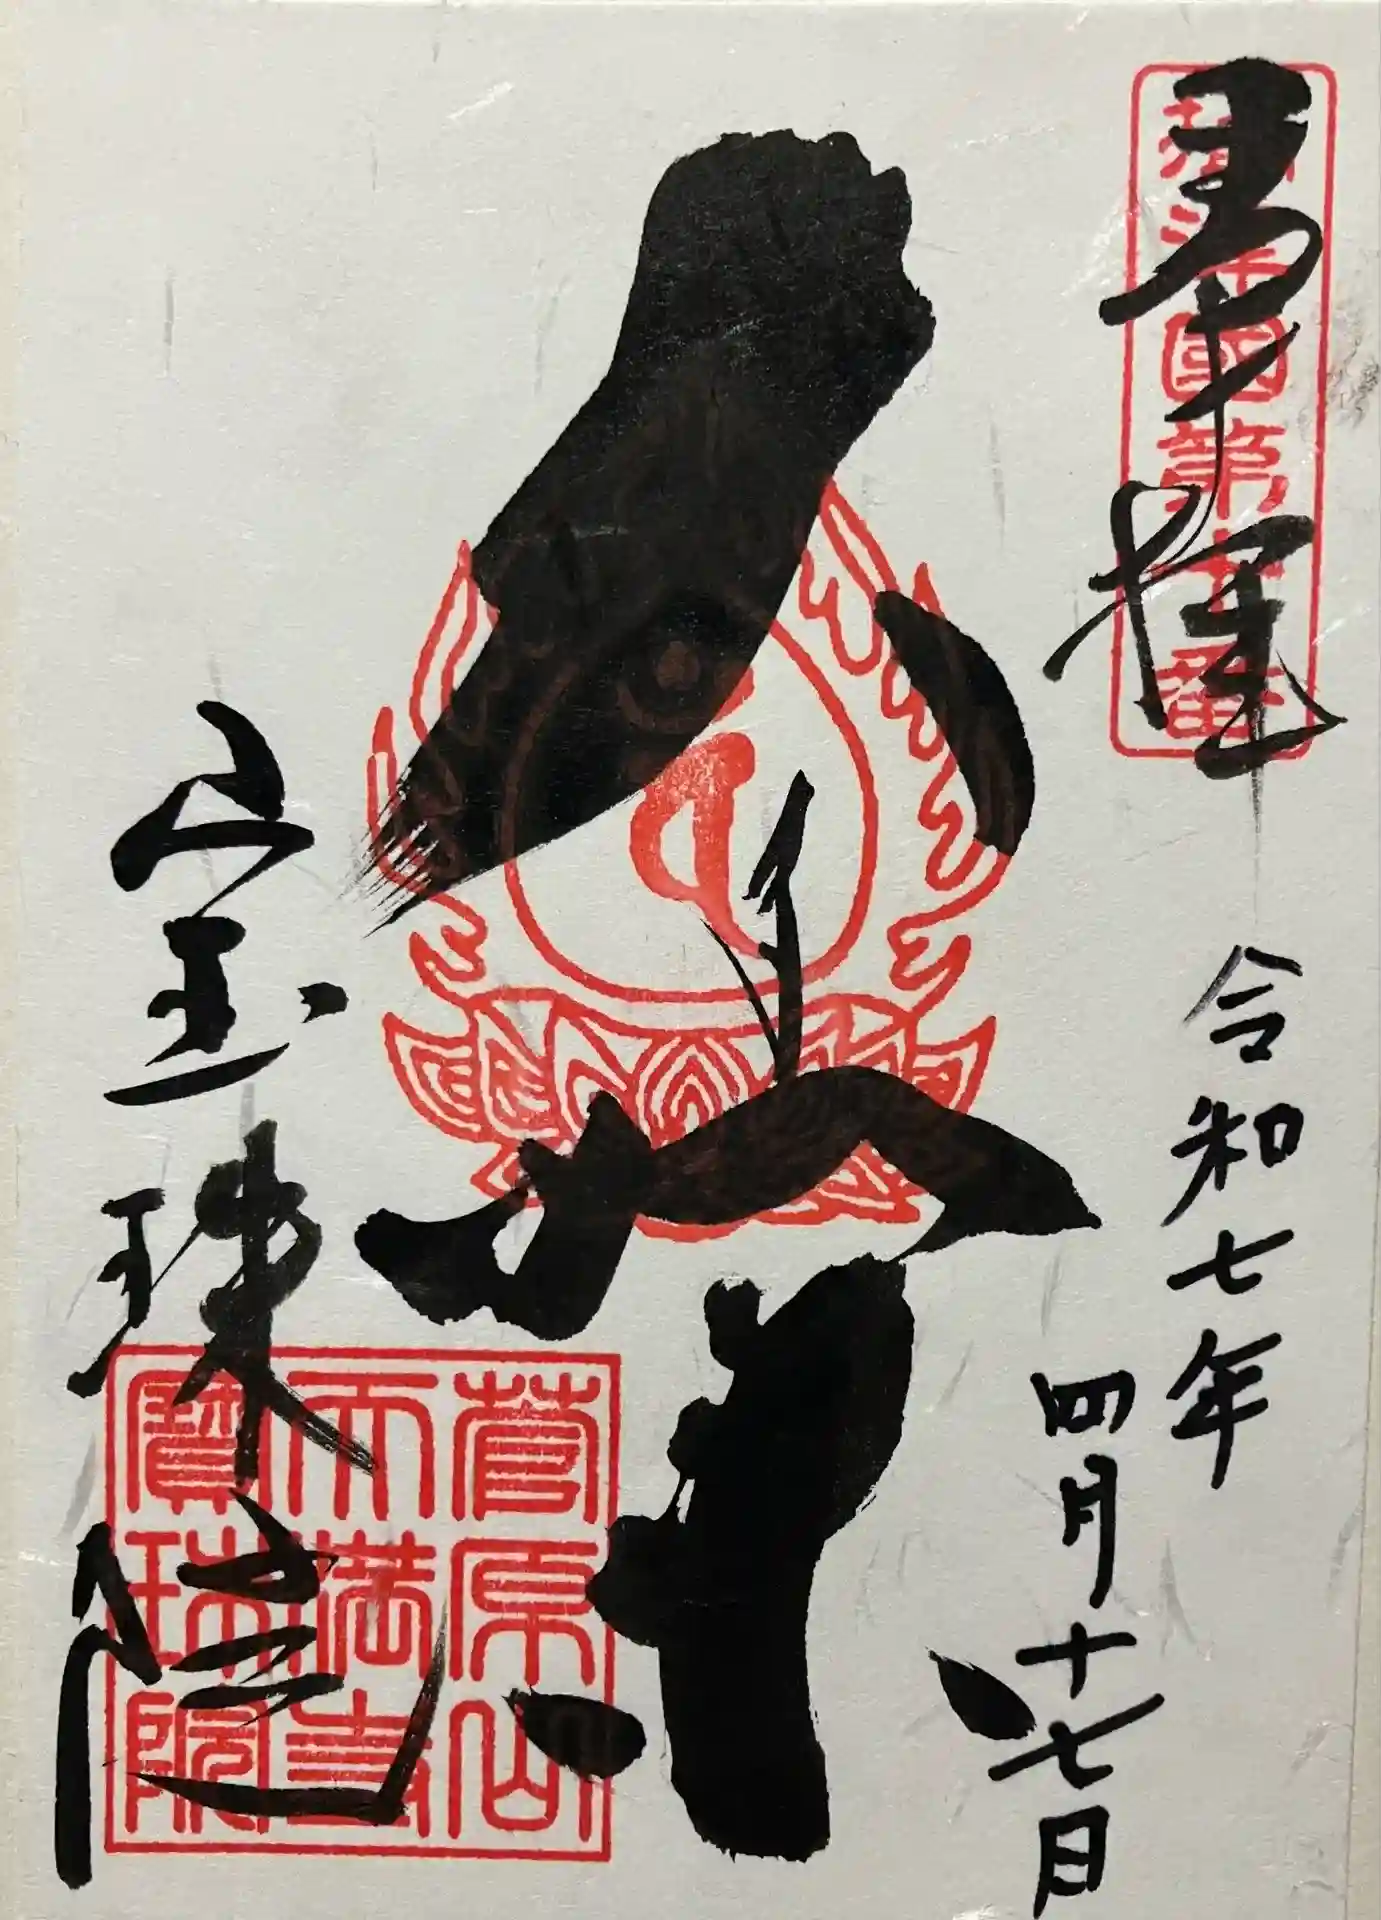 奉拝
國第十番
令和七年
四月十七日
宝珠院
菅原山
天満寺
寶珠院